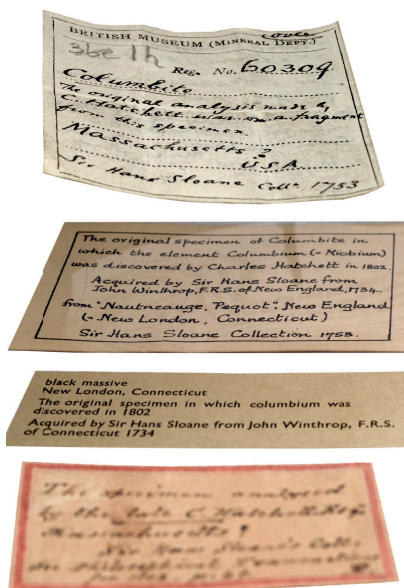 over
BRITISH MUSEUM (MINERAL DEPT.)
36e 1h Reg. No. 60309
Columbite
The original analysis made by
C. Hatchett was on a fragment
from this specimen.
Massachusetts ?
USA
Sir Hans Sloane Colln. 1753
The original specimen of Columbite in
which the element Columbium (= Niobium)
was discovered by Charles Hatchett in 1802.
Acquired by Sir Hans Sloane from
John Winthrop, F.R.S. of New England, 1734.
from "Nautneauge, Pequot". New England
(= New London, Connecticut)
Sir Hans Sloane Collection 1753.
black massive
New London, Connecticut
The original specimen in which columbium was
discovered in 1802
Acquired by Sir Hans Sloane from John Winthrop, F.R.S.
of Connecticut 1734
The specimen analysed
by the late C. Hatchett Esq
Massachusetts ?
Sir Hans Sloane's Coll.
Philosophical Transactions